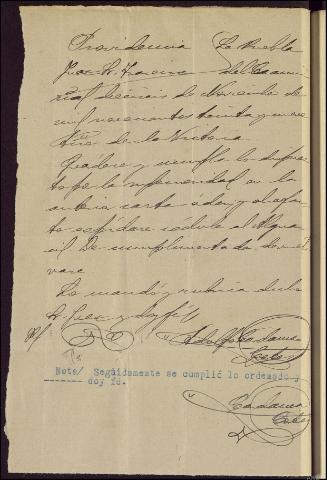 Providencia La Puebla
Juez Sr. Francisco del Caramiñal
diecisis de Noviembre de
mil novecientos treinta y nueve
Año de la Victoria.
Guárdese y cumpla lo dispuesto
por la superioridad en la
anterior carta orden y al efecto
expídase cédula al Alguacil
De cumplimentado devuélvase
Lo mandó y rubrica dicho
Sr Juez y doy fé
Adolfo Cadarso
Nota/ Seguidamente se cumplió lo ordenado y
------- doy fé.
Cadarso